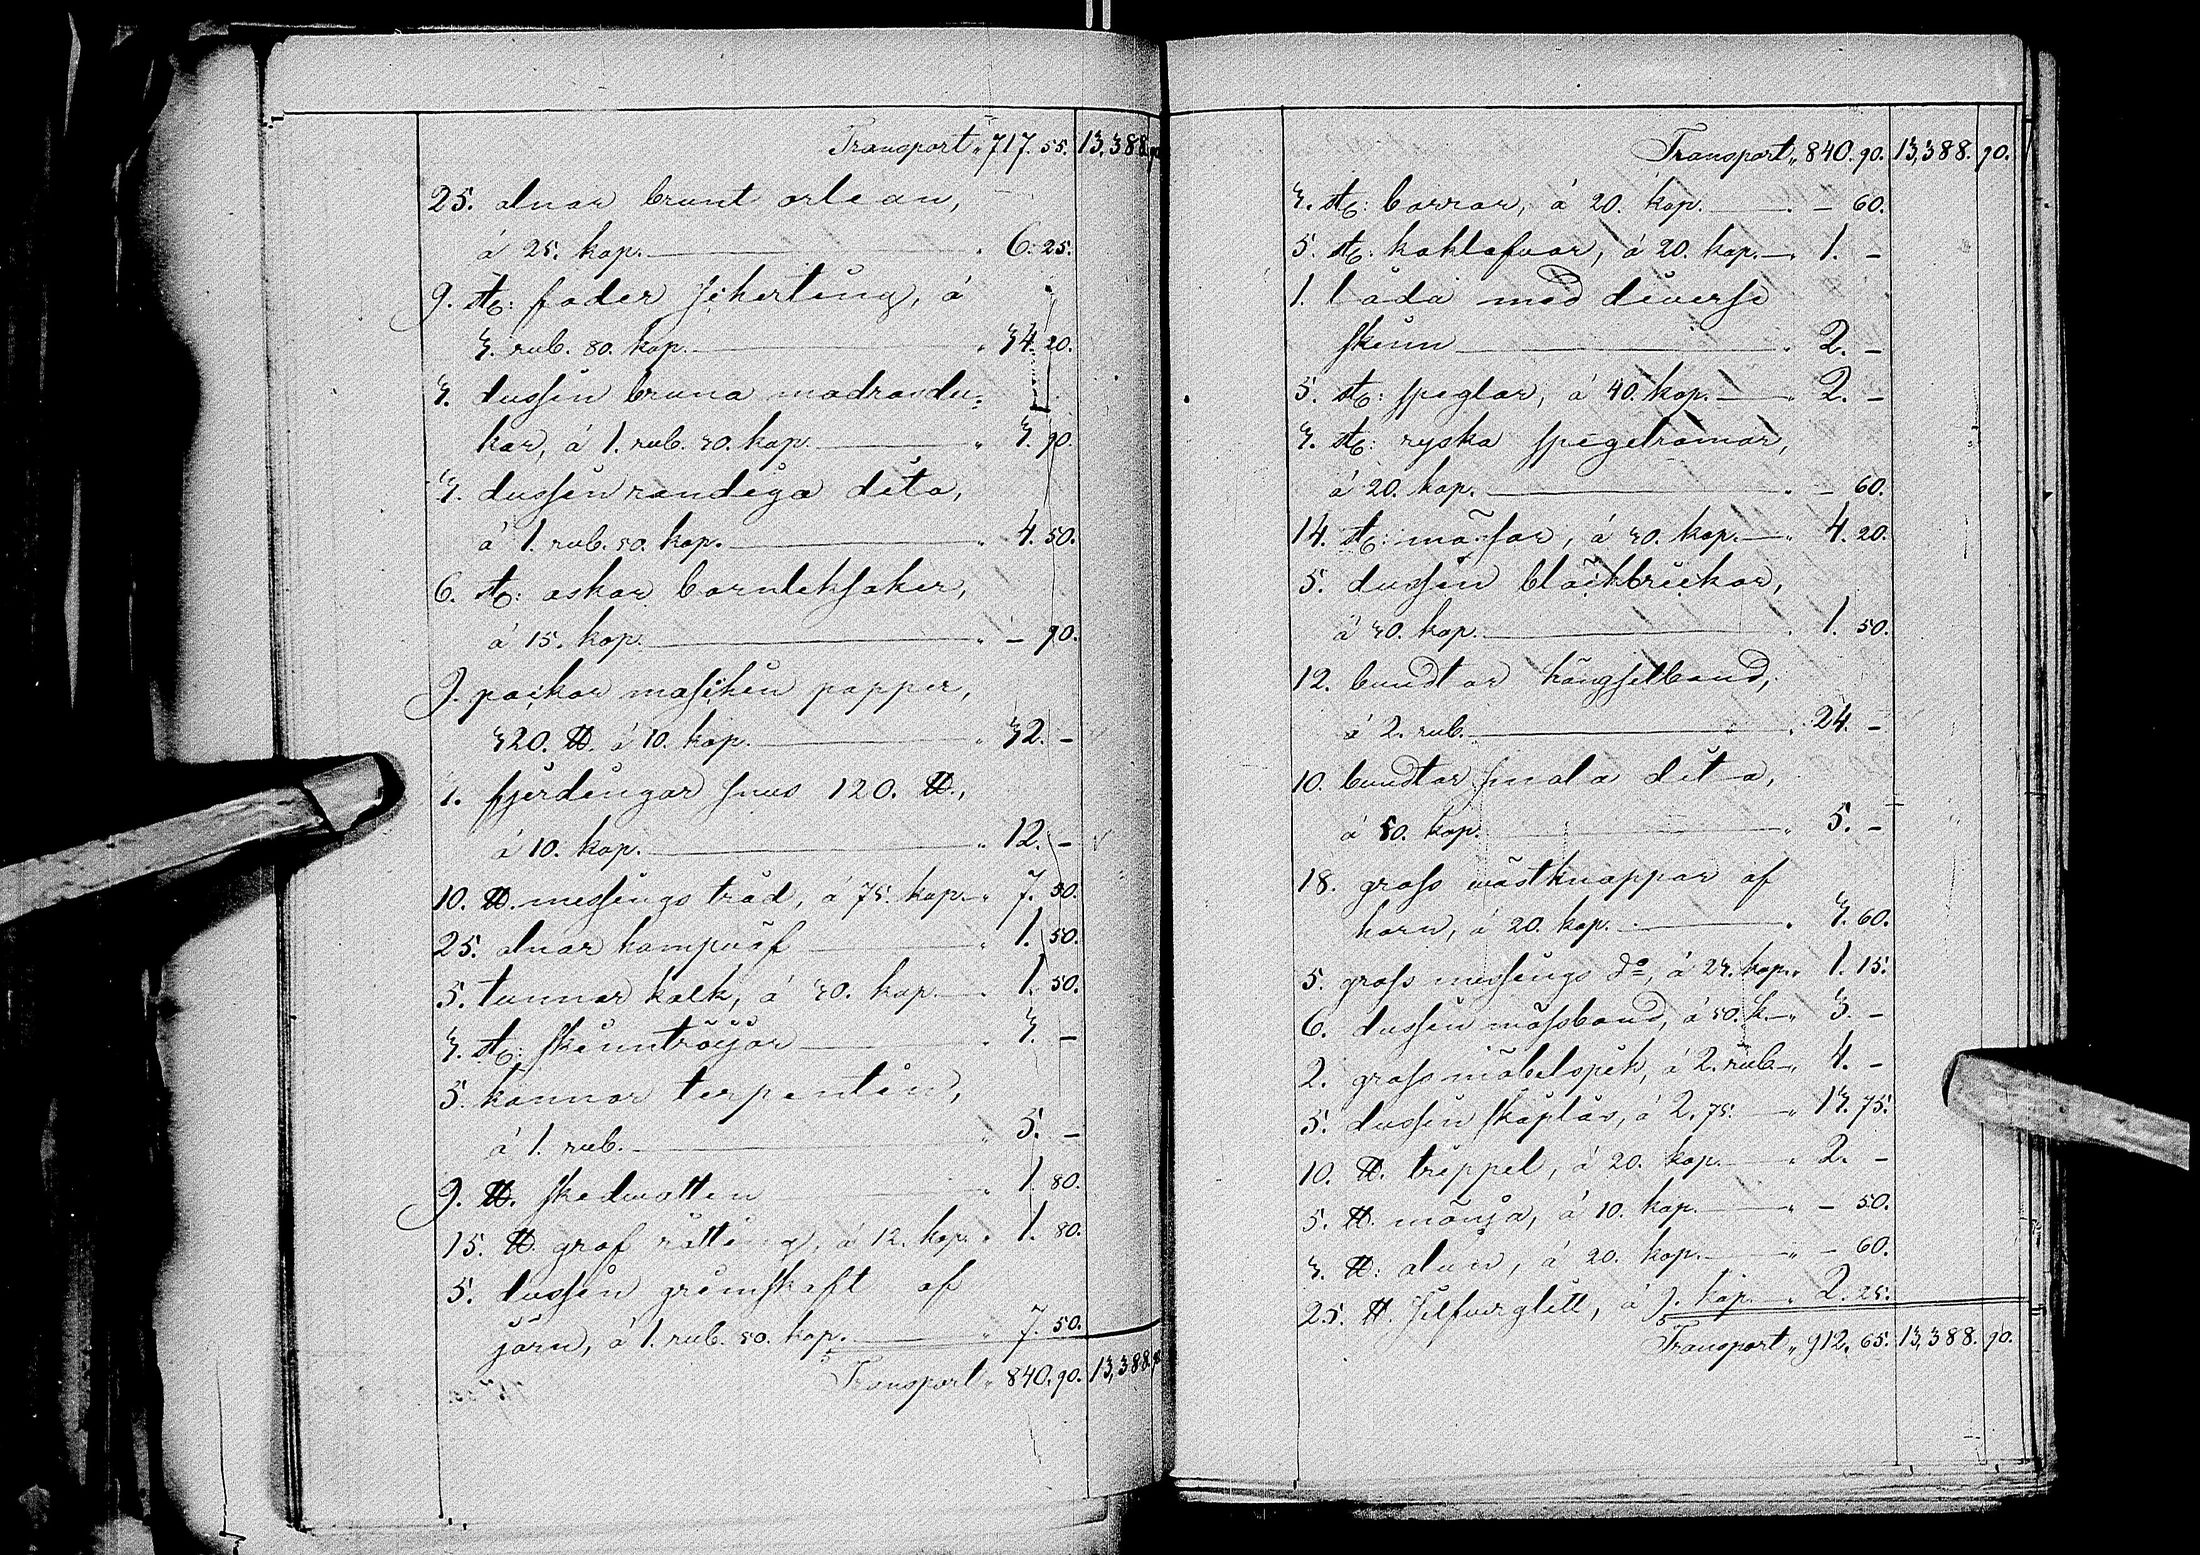 Transport „ 717. 55. 13,388. 90.
25. alnar brunt orlean,
á 25. kop. „ 6. 25.
9. st: foder schirting, á
3. rub. 80. kop. „ 34. 20.
3. dussin bruna madrasdu=
kar, á 1. rub. 30. kop. „ 3. 90.
3. dussin randiga dito,
á 1. rub. 50. kop. „ 4. 50.
6. st: askar barnleksaker,
á 15. kop. „ – 90.
9. packor maschin papper,
320. ℔. á 10. kop. „ 32. –
1. fjerdingar snus 120. ℔.,
á 10. kop. „ 12. –
10. ℔. messings tråd, á 75. kop. „ 7. 50.
25. alnar hampväf „ 1. 50.
5. tunnor kalk, á 30. kop. „ 1. 50.
3. st: skinntröijor „ 3. –
5. kannor terpentin,
á 1. rub. „ 5. –
9. ℔. skedvatten „ 1. 80.
15. ℔. grof rötting, á 12. kop. „ 1. 80.
5. dussin grimskaft af
järn, á 1. rub. 50. kop. „ 7. 50.
Transport „ 840. 90. 13,388. 90.
Transport „ 840. 90. 13,388. 90.
3. st: borrar, á 20. kop. „ – 60.
5. st: hoklafvar, á 20. kop. „ 1. –
1. låda med diverse
skinn „ 2. –
5. st: speglar, á 40. kop. „ 2. –
3. st: ryska spegelramar,
á 20. kop. „ – 60.
14. st: mössor, á 30. kop. „ 4. 20.
5. dussin bläckbrickor,
á 30. kop. „ 1. 50.
12. bundtar hängselband,
á 2. rub. „ 24. –
10. bundtar smala dito,
á 50. kop. „ 5. –
18. gross västknappar af
horn, á 20. kop. „ 3. 60.
5. gross messings do, á 23. kop. „ 1. 15.
6. dussin mössband, á 50. k. „ 3. –
2. gross möbelspik, á 2. rub. „ 4. –
5. dussin skåplås, á 2. 75. „ 13. 75.
10. ℔. trippel, á 20. kop. „ 2. –
5. ℔. mönja, á 10. kop. „ – 50.
3. ℔: alun, á 20. kop. „ – 60.
25. ℔. silfverglitt, á 9. kop. „ 2. 25.
Transport „ 912. 65. 13,388. 90.